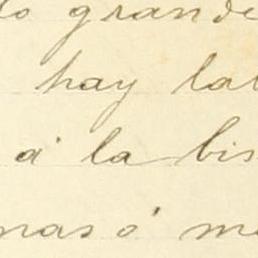 lo grande
hay lab
á la bis
mas ó me